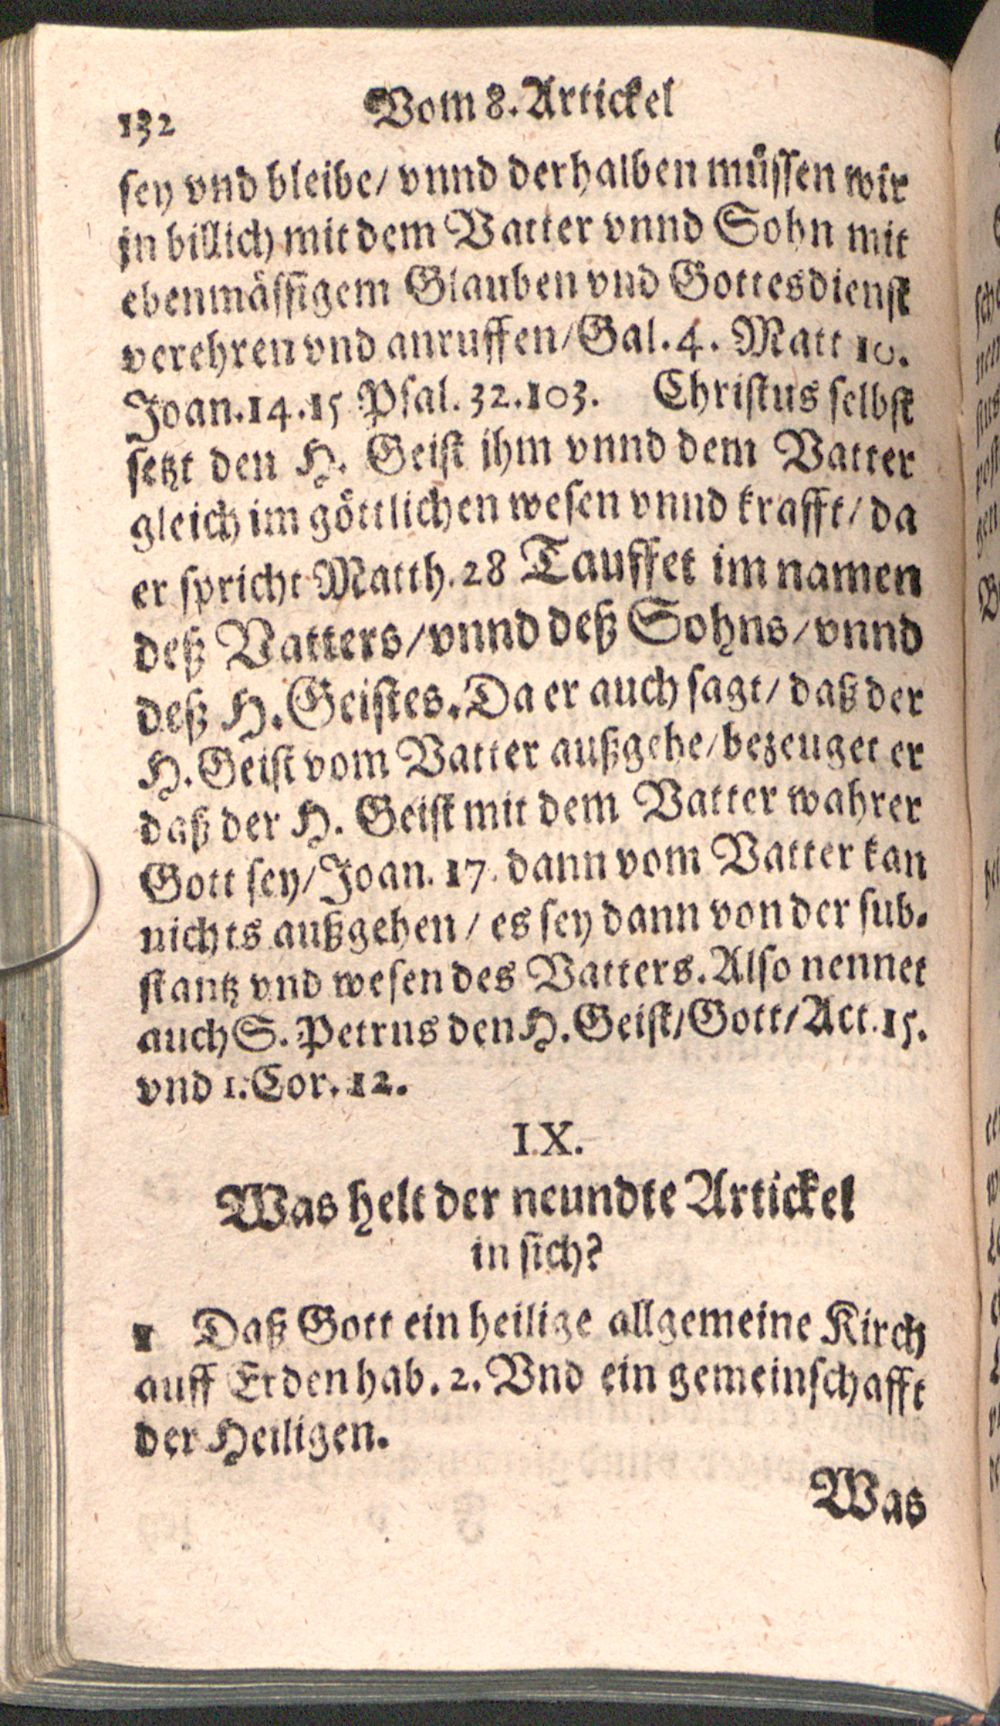 132 Vom 8. Artickel
sey vnd bleibe/ vnnd derhalben müssen wir
jn billich mit dem Vatter vnnd Sohn mit
ebenmässigem Glauben vnd Gottesdienst
verehren vnd anruffen/ Gal. 4. Matt 10.
Joan. 14. 15 Psal. 32. 103. Christus selbst
setzt den H. Geist ihm vnnd dem Vatter
gleich im göttlichen wesen vnnd krafft/ da
er spricht Matth. 28 Tauffet im namen
deß Vatters/ vnnd deß Sohns/ vnnd
deß H. Geistes. Da er auch sagt/ daß der
H. Geist vom Vatter außgehe/ bezeuget er
daß der H. Geist mit dem Vatter wahrer
Gott sey/ Joan. 17. dann vom Vatter kan
nichts außgehen/ es sey dann von der sub-
stantz vnd wesen des Vatters. Also nennet
auch S. Petrus den H. Geist/ Gott/ Act. 15.
vnd 1. Cor. 12.
IX.
Was helt der neundte Artickel
in sich?
1 Daß Gott ein heilige allgemeine Kirch
auff Erden hab. 2. Vnd ein gemeinschafft
der Heiligen.
Was